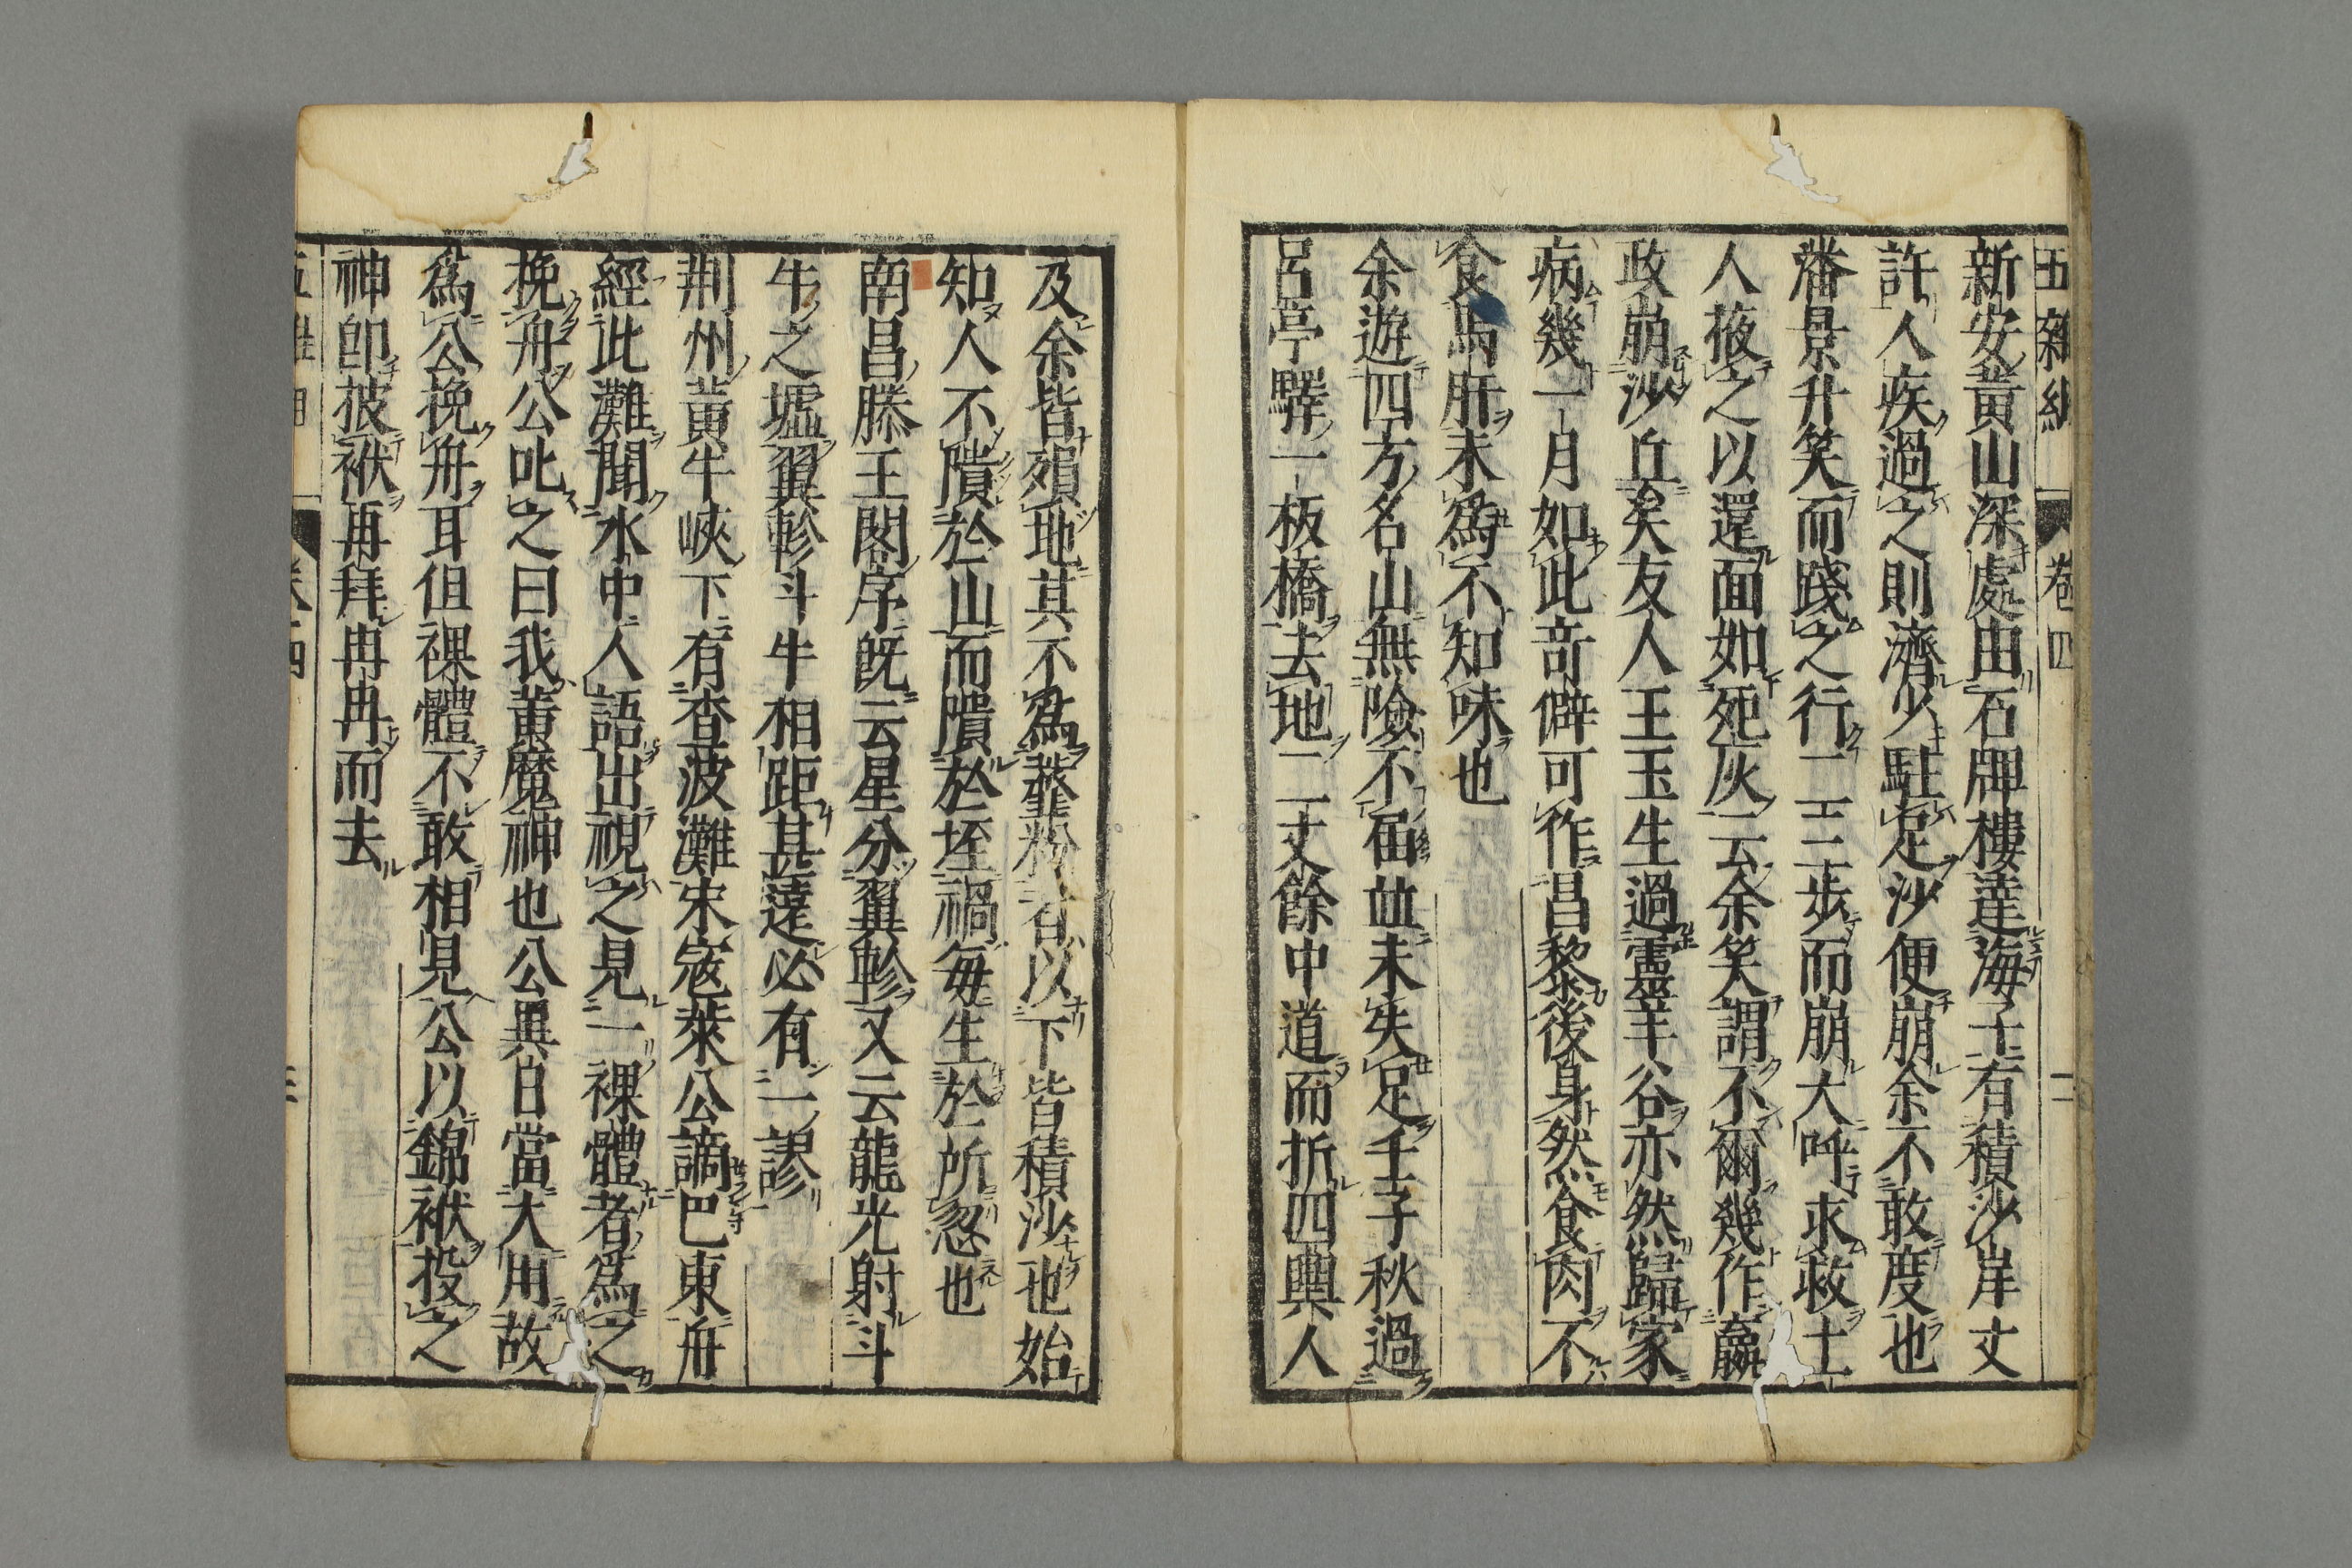 五雜組 卷四 二
新安黃山深處由石牌樓達海子有積沙岸丈
許人疾過之則濟少駐足沙便崩余不敢度也
潘景升笑而踐之行一二三步而崩大呼求救土
人掖之以還面如死灰云余笑謂不爾幾作嬴
政崩沙丘矣友人王玉生過靈羊谷亦然歸家
病幾一月如此奇僻可作昌黎後身然食肉不
食馬肝未為不知味也
余遊四方名山無險不屆並未失足壬子秋過
呂亭驛一板橋去地二丈餘中道而折四輿人
及余皆殞地其不為虀粉者以下皆積沙也始
知人不隤於山而隤於垤禍每生於所忽也
南昌滕王閣序既云星分翼軫又云龍光射斗
牛之墟翼軫斗牛相距甚遠必有一謬
荆州黃牛峽下有杳波灘宋宼萊公謫巴東舟
經此灘聞水中人語出視之見一裸體者為之
挽舟公叱之曰我黃魔神也公異日當大用故
為公挽舟耳但裸體不敢相見公以錦袱投之
神卽披袱再拜冉冉而去